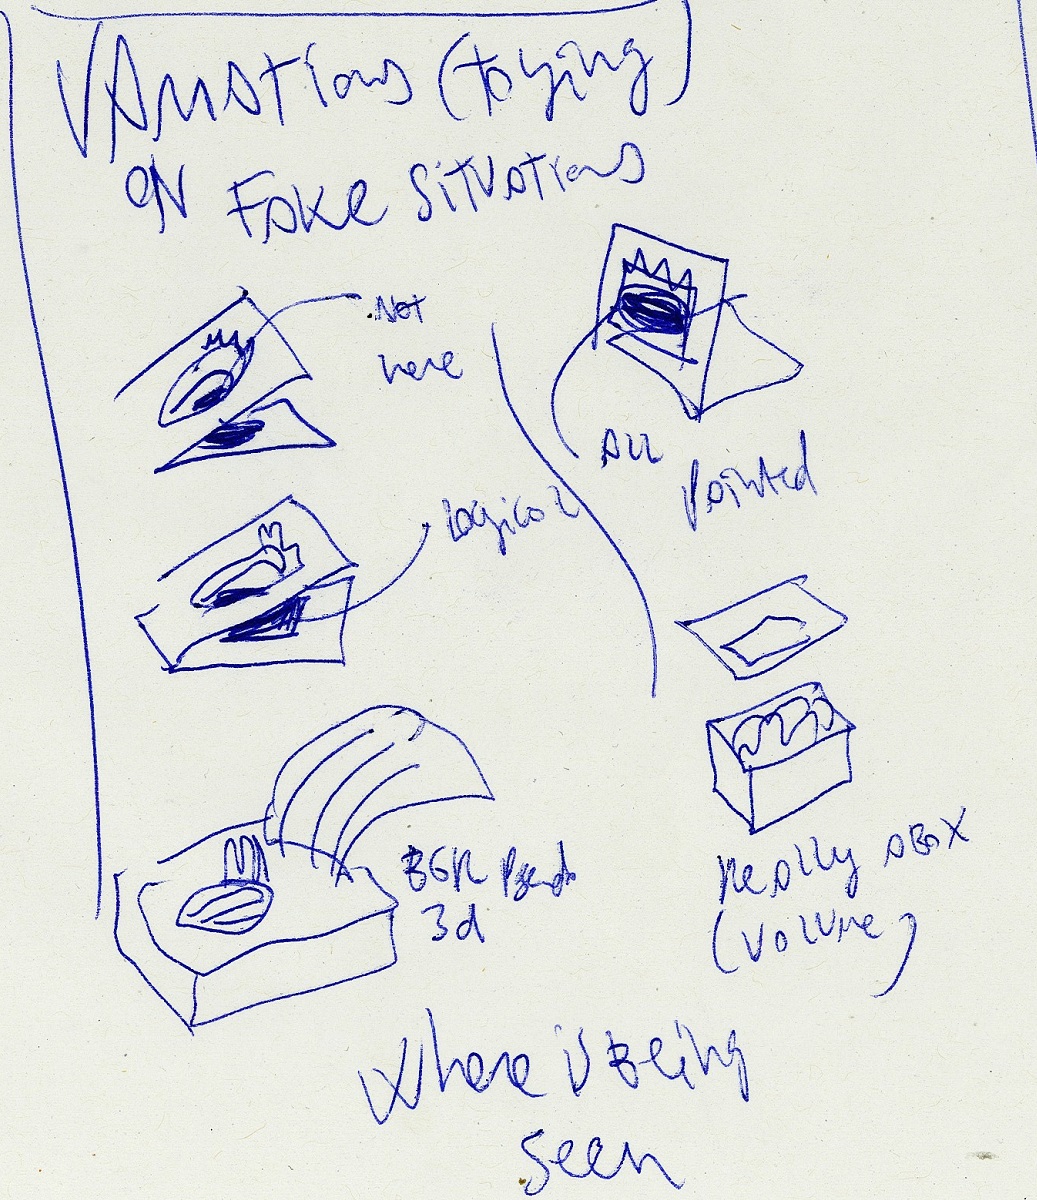 VARIATIONS (toying)
ON FAKE SITUATIONS
Not
here
ALL
Painted
Logical
3d
Really A BOX
(VOLUME)
Where is Being
Seen